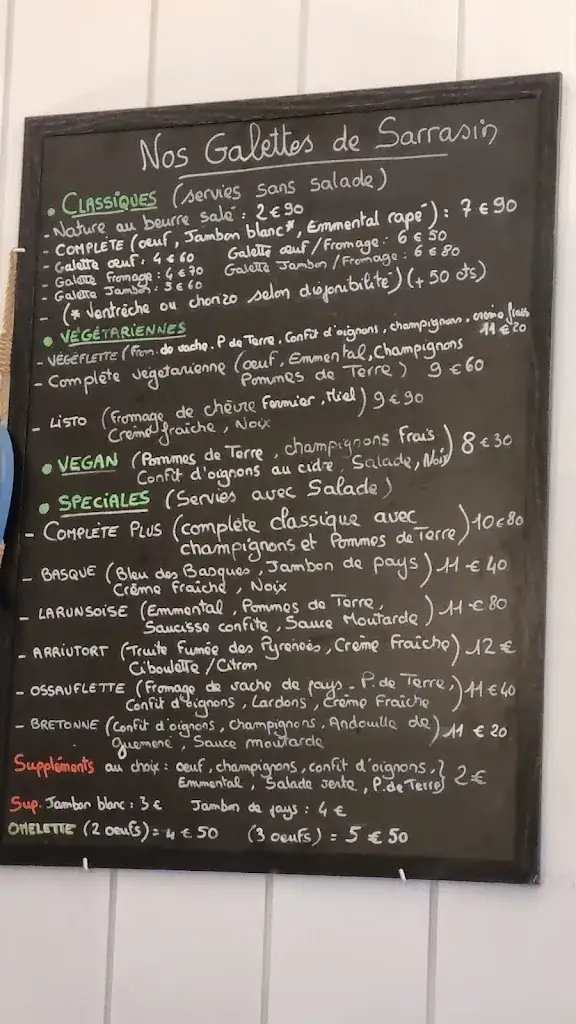 Nos Galettes de Sarrasin
• CLASSIQUES (servies sans salade)
- Nature au beurre salé : 2€90
- COMPLÈTE (oeuf, Jambon blanc*, Emmental rapé) : 7€90
- Galette oeuf : 4€60 Galette oeuf/Fromage : 6€50
- Galette fromage : 4€70 Galette Jambon/Fromage : 6€80
- Galette Jambon : 5€60
- (* Ventrèche ou chorizo selon disponibilité) (+ 50 cts)
• VÉGÉTARIENNES
- VÉGÉFLETTE (From. de vache, P. de Terre, Confit d'oignons, champignons, crème fraîch
11€20
- Complète végétarienne (oeuf, Emmental, Champignons
Pommes de Terre) 9€60
- LISTO (Fromage de chèvre Fermier, Miel) 9€90
Crème fraîche, Noix
• VEGAN (Pommes de Terre, champignons Frais) 8€30
Confit d'oignons au cidre, Salade, Noix
• SPÉCIALES (Servies avec Salade)
- COMPLÈTE PLUS (complète classique avec 10€80
champignons et Pommes de Terre)
- BASQUE (Bleu des Basques, Jambon de pays) 11€40
Crème Fraîche, Noix
- LARUNSOISE (Emmental, Pommes de Terre,) 11€80
Saucisse confite, Sauce Moutarde
- ARRIUTORT (Truite Fumée des Pyrénées, Crème Fraîche) 12€
Ciboulette/Citron
- OSSAUFLETTE (Fromage de vache de pays - P. de Terre,) 11€40
Confit d'oignons, Lardons, Crème Fraîche
- BRETONNE (Confit d'oignons, champignons, Andouille de) 11€20
Guémené, Sauce moutarde
Suppléments au choix : oeuf, champignons, confit d'oignons, } 2€
Emmental, Salade verte, P. de Terre
Sup. Jambon blanc : 3€ Jambon de pays : 4€
OMELETTE (2 oeufs) = 4€50 (3 oeufs) = 5€50